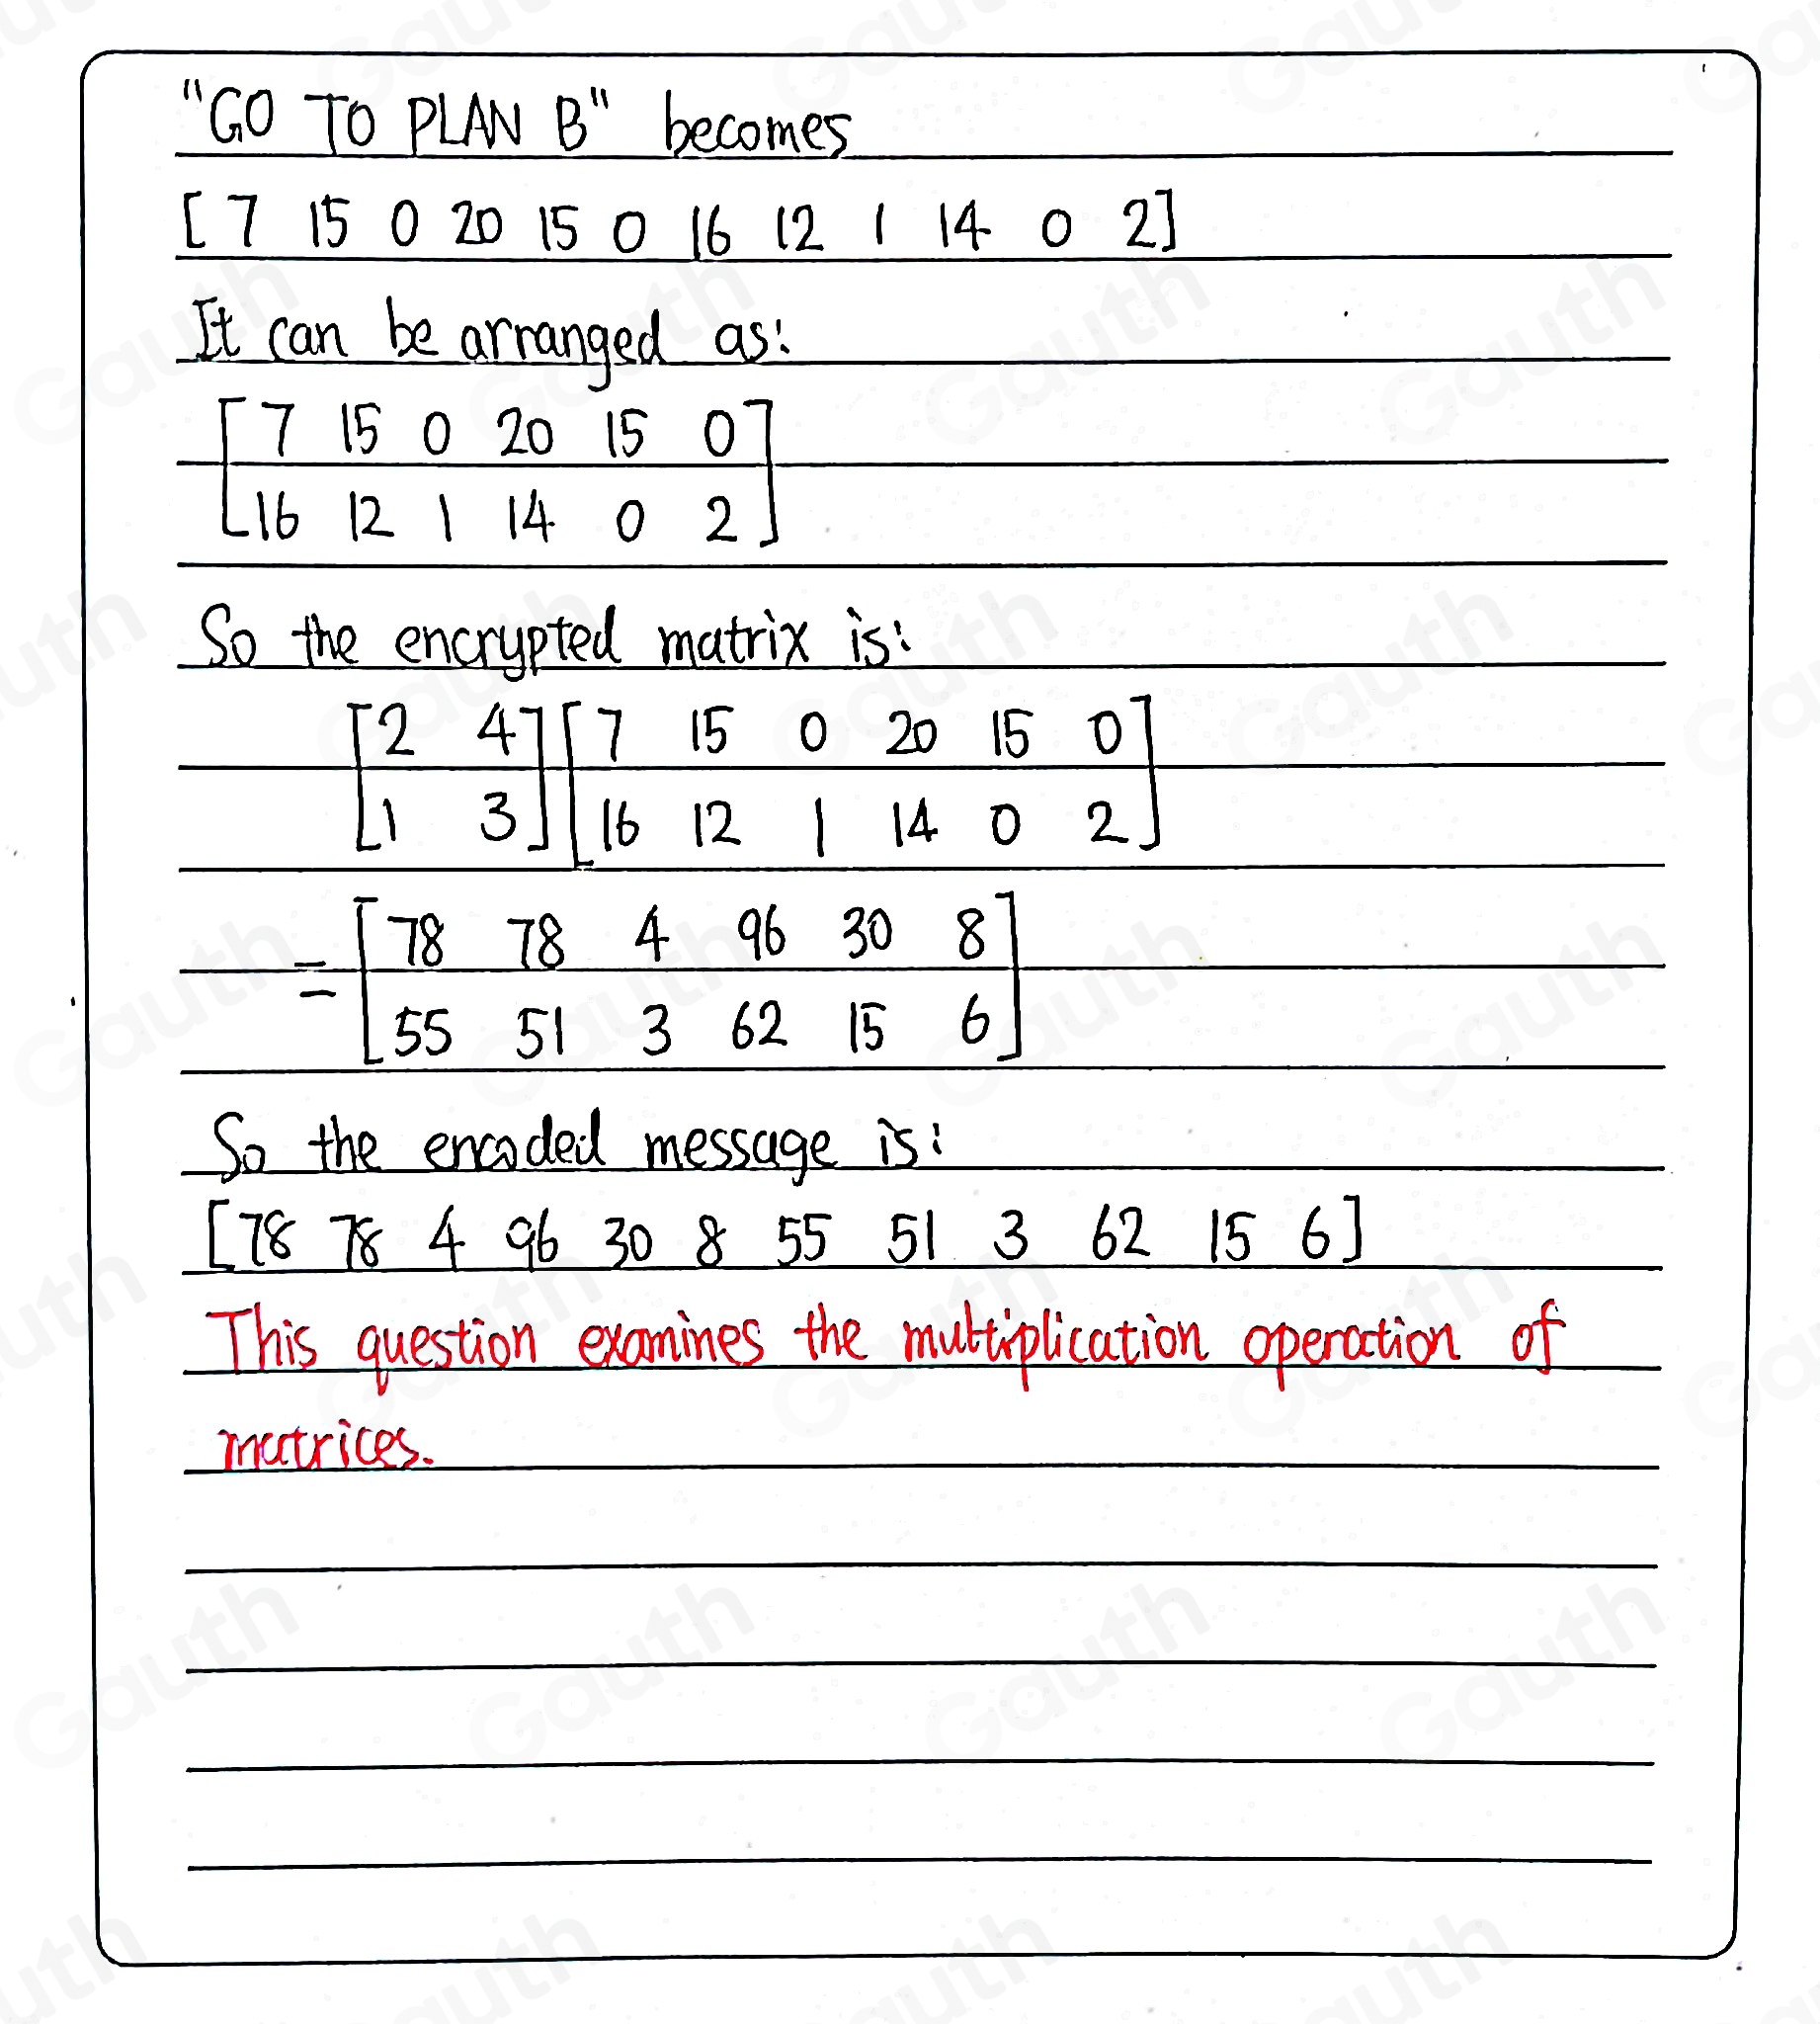 "GO TO PLAN B" becomes
[7 15 0 20 15 0 16 12 1 14 0 2]
It can be arranged as:
[7 15 0 20 15 0
16 12 1 14 0 2]
So the encrypted matrix is:
[2 4] [7 15 0 20 15 0]
[1 3] [16 12 1 14 0 2]
= [78 78 4 96 30 8
55 51 3 62 15 6]
So the encoded message is:
[78 78 4 96 30 8 55 51 3 62 15 6]
This question examines the multiplication operation of
matrices.
Gauth